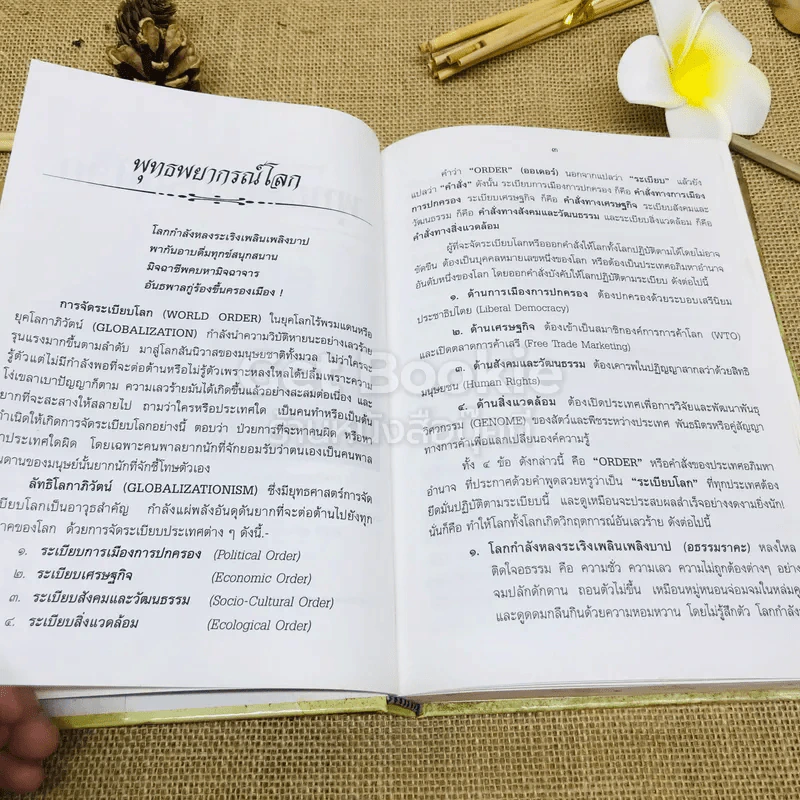 พุทธพยากรณ์โลก
โลกกำลังหลงระเริงเพลินเพลิงบาป
พากันอาบดื่มทุกข์สนุกสนาน
มิจฉาชีพคบหามิจฉาจาร
อันธพาลกู่ร้องขึ้นครองเมือง !
การจัดระเบียบโลก (WORLD ORDER) ในยุคโลกไร้พรมแดนหรือ
ยุคโลกาภิวัตน์ (GLOBALIZATION) กำลังนำความวิบัติหายนะอย่างเลวร้าย
รุนแรงมากขึ้นตามลำดับ มาสู่โลกสันนิวาสของมนุษยชาติทั้งมวล ไม่ว่าใครจะ
รู้ตัวแต่ไม่มีกำลังพอที่จะต่อต้านหรือไม่รู้ตัวเพราะหลงใหลได้ปลื้มเพราะความ
โง่เขลาเบาปัญญาก็ตาม ความเลวร้ายมันได้เกิดขึ้นแล้วอย่างสะสมต่อเนื่อง และ
ยากที่จะสะสางให้สลายไป ถามว่าใครหรือประเทศใด เป็นคนทำหรือเป็นต้น
กำเนิดให้เกิดการจัดระเบียบโลกอย่างนี้ ตอบว่า ป่วยการที่จะหาคนผิด หรือหา
ว่าประเทศใดผิด โดยเฉพาะคนพาลยากนักที่จักยอมรับว่าตนเองเป็นคนพาล
ดานของมนุษย์นั้นยากนักที่จักชี้โทษตัวเอง
ลัทธิโลกาภิวัตน์ (GLOBALIZATIONISM) ซึ่งมียุทธศาสตร์การจัด
เบียบโลกเป็นอาวุธสำคัญ กำลังแผ่พลังอันดุดันยากที่จะต่อต้านไปยังทุก
ภาคของโลก ด้วยการจัดระเบียบประเทศต่าง ๆ ดังนี้.-
๑. ระเบียบการเมืองการปกครอง (Political Order)
๒. ระเบียบเศรษฐกิจ (Economic Order)
๓. ระเบียบสังคมและวัฒนธรรม (Socio-Cultural Order)
๔. ระเบียบสิ่งแวดล้อม (Ecological Order)
๓
คำว่า "ORDER" (ออเดอร์) นอกจากแปลว่า "ระเบียบ" แล้วยัง
แปลว่า "คำสั่ง" ดังนั้น ระเบียบการเมืองการปกครอง ก็คือ คำสั่งทางการเมือง
การปกครอง ระเบียบเศรษฐกิจ ก็คือ คำสั่งทางเศรษฐกิจ ระเบียบสังคมและ
วัฒนธรรม ก็คือ คำสั่งทางสังคมและวัฒนธรรม และระเบียบสิ่งแวดล้อม ก็คือ
คำสั่งทางสิ่งแวดล้อม
ผู้ที่จะจัดระเบียบโลกหรือออกคำสั่งให้โลกทั้งโลกปฏิบัติตามได้โดยไม่อาจ
ขัดขืน ต้องเป็นบุคคลหมายเลขหนึ่งของโลก หรือต้องเป็นประเทศอภิมหาอำนาจ
อันดับหนึ่งของโลก โดยออกคำสั่งบังคับให้โลกปฏิบัติตามระเบียบ ดังต่อไปนี้
๑. ด้านการเมืองการปกครอง ต้องปกครองด้วยระบอบเสรีนิยม
ประชาธิปไตย (Liberal Democracy)
๒. ด้านเศรษฐกิจ ต้องเข้าเป็นสมาชิกองค์การการค้าโลก (WTO)
และเปิดตลาดการค้าเสรี (Free Trade Marketing)
๓. ด้านสังคมและวัฒนธรรม ต้องเคารพในปฏิญญาสากลว่าด้วยสิทธิ
มนุษยชน (Human Rights)
๔. ด้านสิ่งแวดล้อม ต้องเปิดประเทศเพื่อการวิจัยและพัฒนาพันธุ
วิศวกรรม (GENOME) ของสัตว์และพืชระหว่างประเทศ พันธมิตรหรือคู่สัญญา
ทางการค้าเพื่อแลกเปลี่ยนองค์ความรู้
ทั้ง ๔ ข้อ ดังกล่าวนี้ คือ "ORDER" หรือคำสั่งของประเทศอภิมหา
อำนาจ ที่ประกาศด้วยคำพูดสวยหรูว่าเป็น "ระเบียบโลก" ที่ทุกประเทศต้อง
ยึดมั่นปฏิบัติตามระเบียบนี้ และดูเหมือนจะประสบผลสำเร็จอย่างงดงามยิ่งนัก!
นั่นก็คือ ทำให้โลกทั้งโลกเกิดวิกฤตการณ์อันเลวร้าย ดังต่อไปนี้
๑. โลกกำลังหลงระเริงเพลินเพลิงบาป (อธรรมราคะ) หลงใหล
ติดใจอธรรม คือ ความชั่ว ความเลว ความไม่ถูกต้องต่างๆ อย่าง
จมปลักดักดาน ถอนตัวไม่ขึ้น เหมือนหมู่หนอนจ่อมจมในหล่มคู
และดูดดมกลืนกินด้วยความหอมหวาน โดยไม่รู้สึกตัว โลกกำลั
Get Bookie
ร้านหนังสือกู๊ดที่